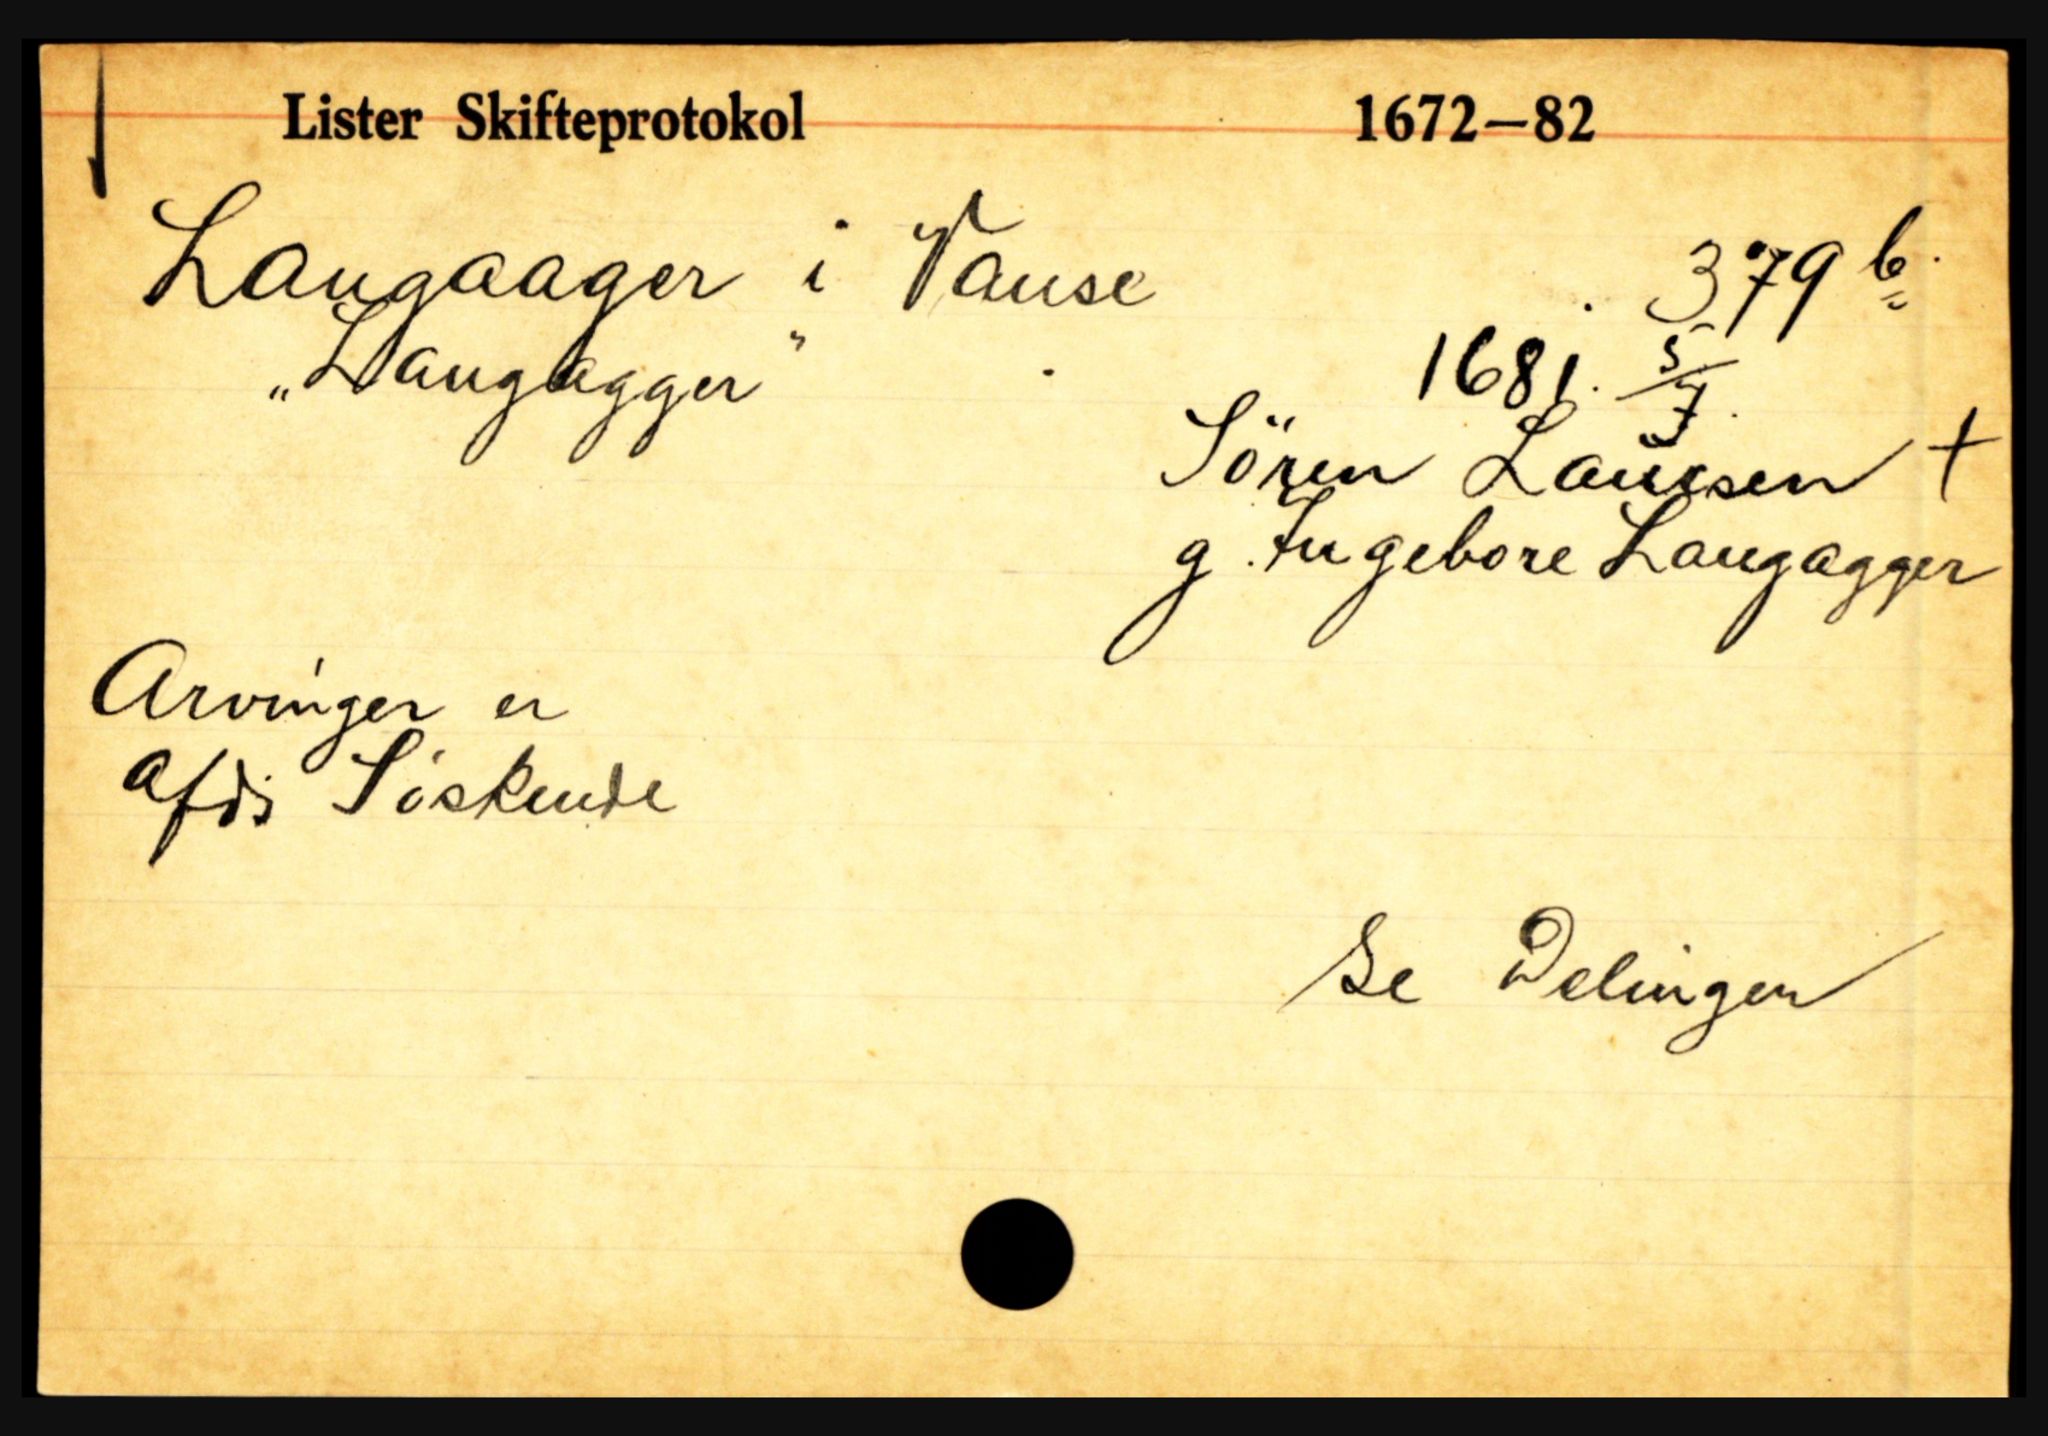 Lister Skifteprotokol 1672–82
Langaager i Vanse 379 b.
"Langagger" 1681. 5/7.
Sören Laursen +
g. Ingebore Langagger
Arvinger er
afds Söskende
Se Delingen